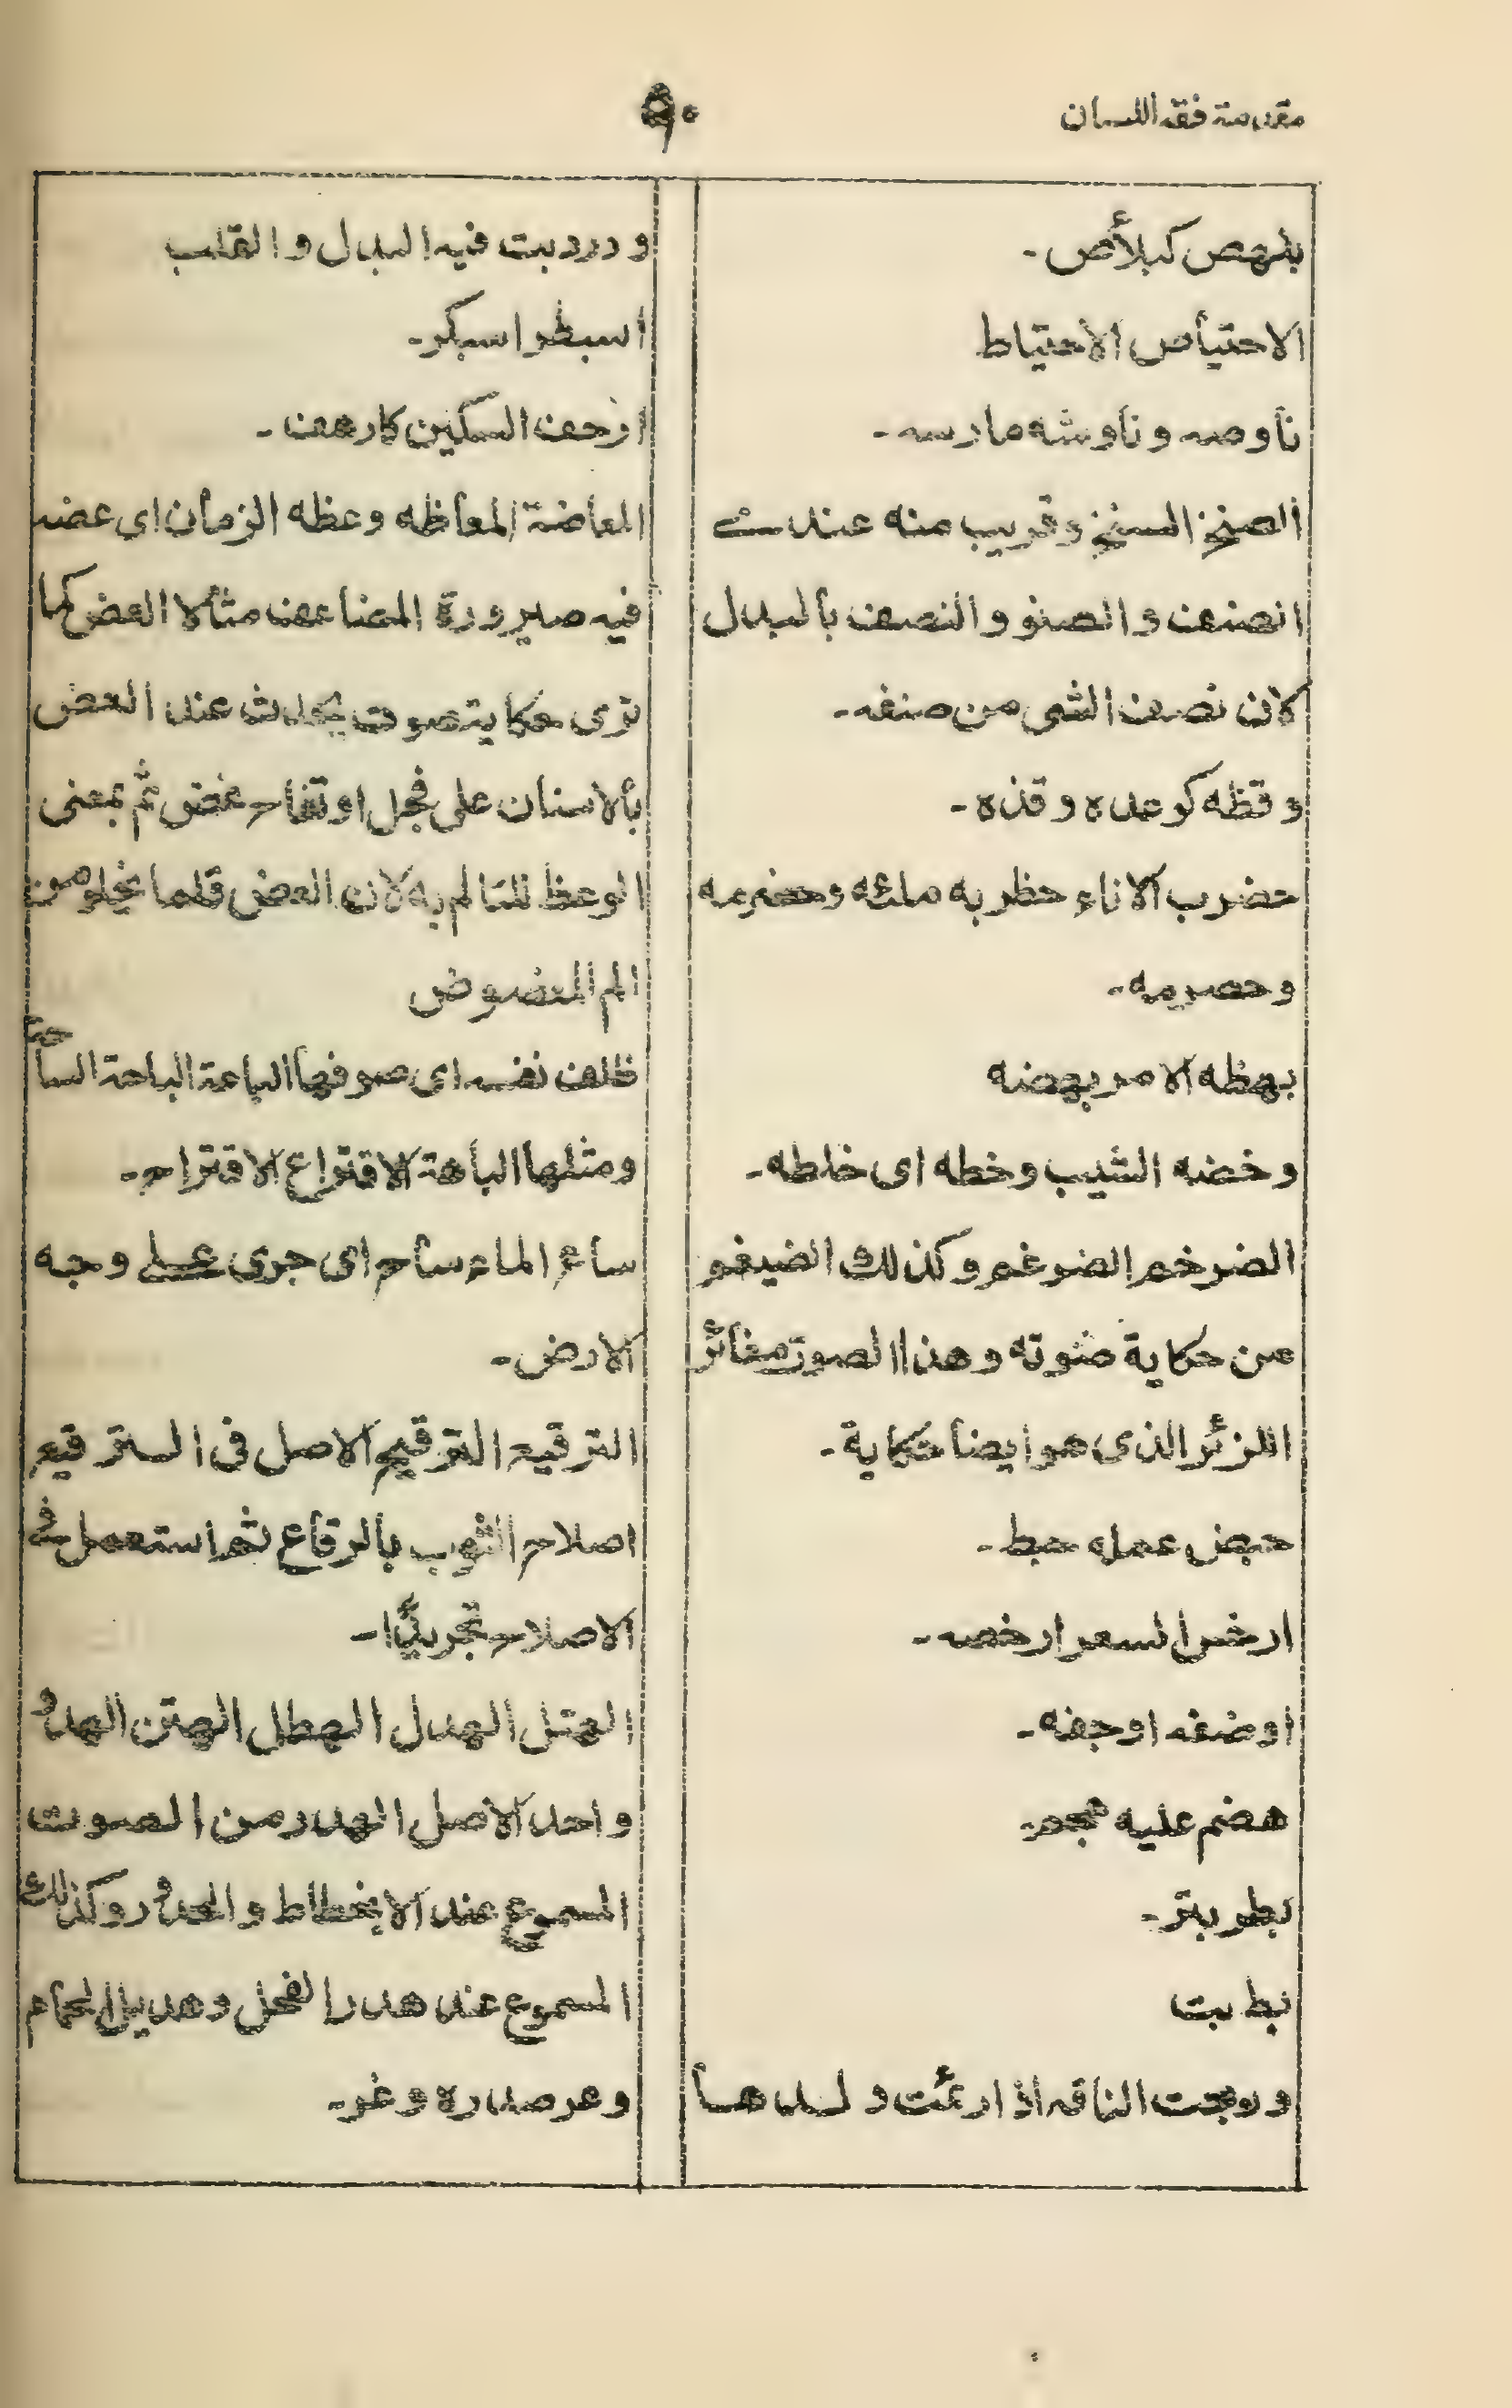 مقدمة فقه اللسان
٥٠
بلهص كبلأص -
الاحتياص الاحتياط
ناوصه و ناوشه مارسه -
الصنخ السنخ وقريب منه عندے
الصنف و الصنو و النصف بالبدال
كان نصف الشى من صنفه -
وقظه كوعده وقذه -
حضرب الاناء حظربه ملئه وحضرمه
وحصرمه -
بهظه الامر بهضه
وخضه الشيب وخطه اى خلطه -
الضرخم الضرغم وكذلك الضيغم
من حكاية صوته وهذا الصوت مغائر
الزئر الذى هو ايضا حكاية -
حبض عمله حبط -
ارخس السعر ارخصه -
اوضفه اوجفه -
هضم عليه هجم -
بطر بتر -
بط بت
و دوجت الناقه اذا رئمت ولدها
و دردبت فيه البدال و القلب
اسبطر اسبكر -
ازحف السكين كارهف -
المعاضة المعاظه وعظه الزمان اى عضه
فيه صيرورة المضاعف مثالا العض كما
ترى حكاية صوت يحدث عند العض
بالاسنان على فجل او تفاح غض ثم بمعنى
الوعظ للتالم به لان العض قلما يخلو من
الم المعضوض
ظلف نفسه اى صوفها الباعة الباحة الساحة
ومثلها الباهة الاقتراع الاقتراح -
ساع الماء ساح اى جرى على وجه
الارض -
الترقيع الترقيح الاصل فى الترقيع
اصلاح الثوب بالرقاع ثم استعمل فى
الاصلاح تجريدًا -
الهتل الهدل الهطل الهتن الهدر
واحد الاصل الهدر من الصوت
المسموع عند الانحطاط والحدور وكذلك
المسموع عند هدر الفحل وهديل الحمام
وعر صدره وغر -